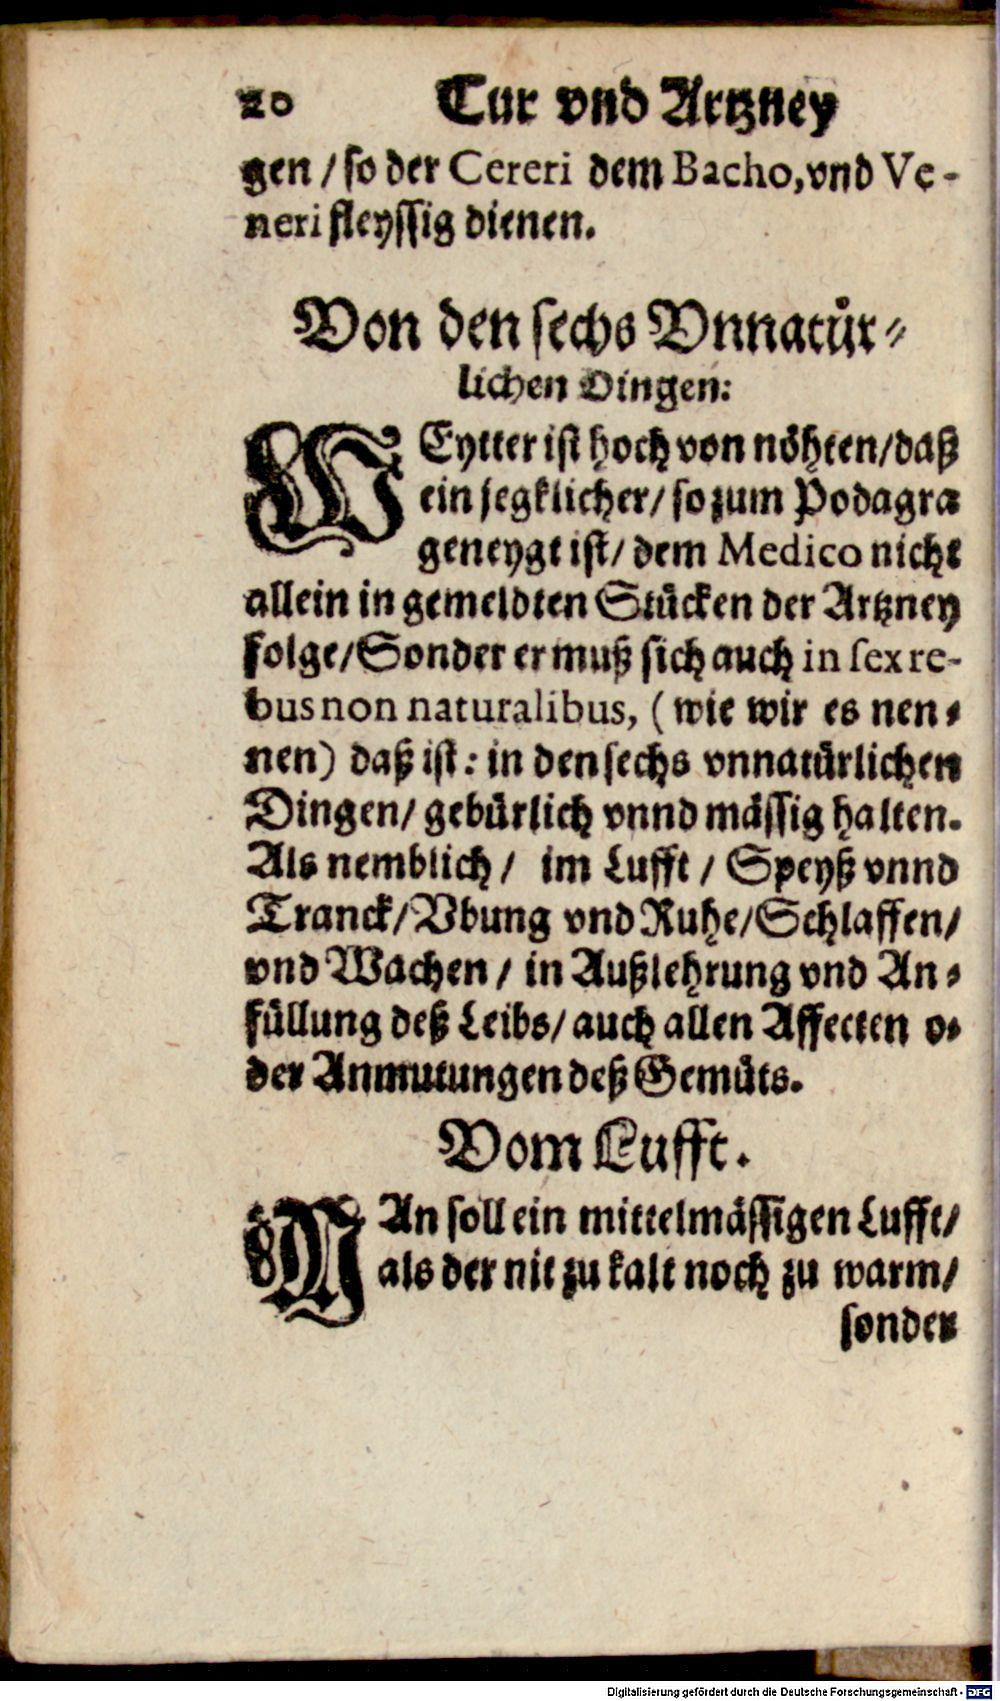 20 Cur vnd Artzney
gen / so der Cereri dem Bacho, vnd Ve-
neri fleyssig dienen.
Von den sechs Vnnatuͤr-
lichen Dingen:
WEytter ist hoch von nöhten / daß
ein jegklicher / so zum Podagra
geneygt ist / dem Medico nicht
allein in gemeldten Stücken der Artzney
folge / Sonder er muß sich auch in sex re-
bus non naturalibus, (wie wir es nen-
nen) daß ist: in den sechs vnnatürlichen
Dingen / gebürlich vnnd mässig halten.
Als nemblich / im Lufft / Speyß vnnd
Tranck / Vbung vnd Ruhe / Schlaffen /
vnd Wachen / in Außlehrung vnd An-
füllung deß Leibs / auch allen Affecten o-
der Anmutungen deß Gemüts.
Vom Lufft.
MAn soll ein mittelmässigen Lufft /
als der nit zu kalt noch zu warm /
sonder
Digitalisierung gefördert durch die Deutsche Forschungsgemeinschaft - DFG